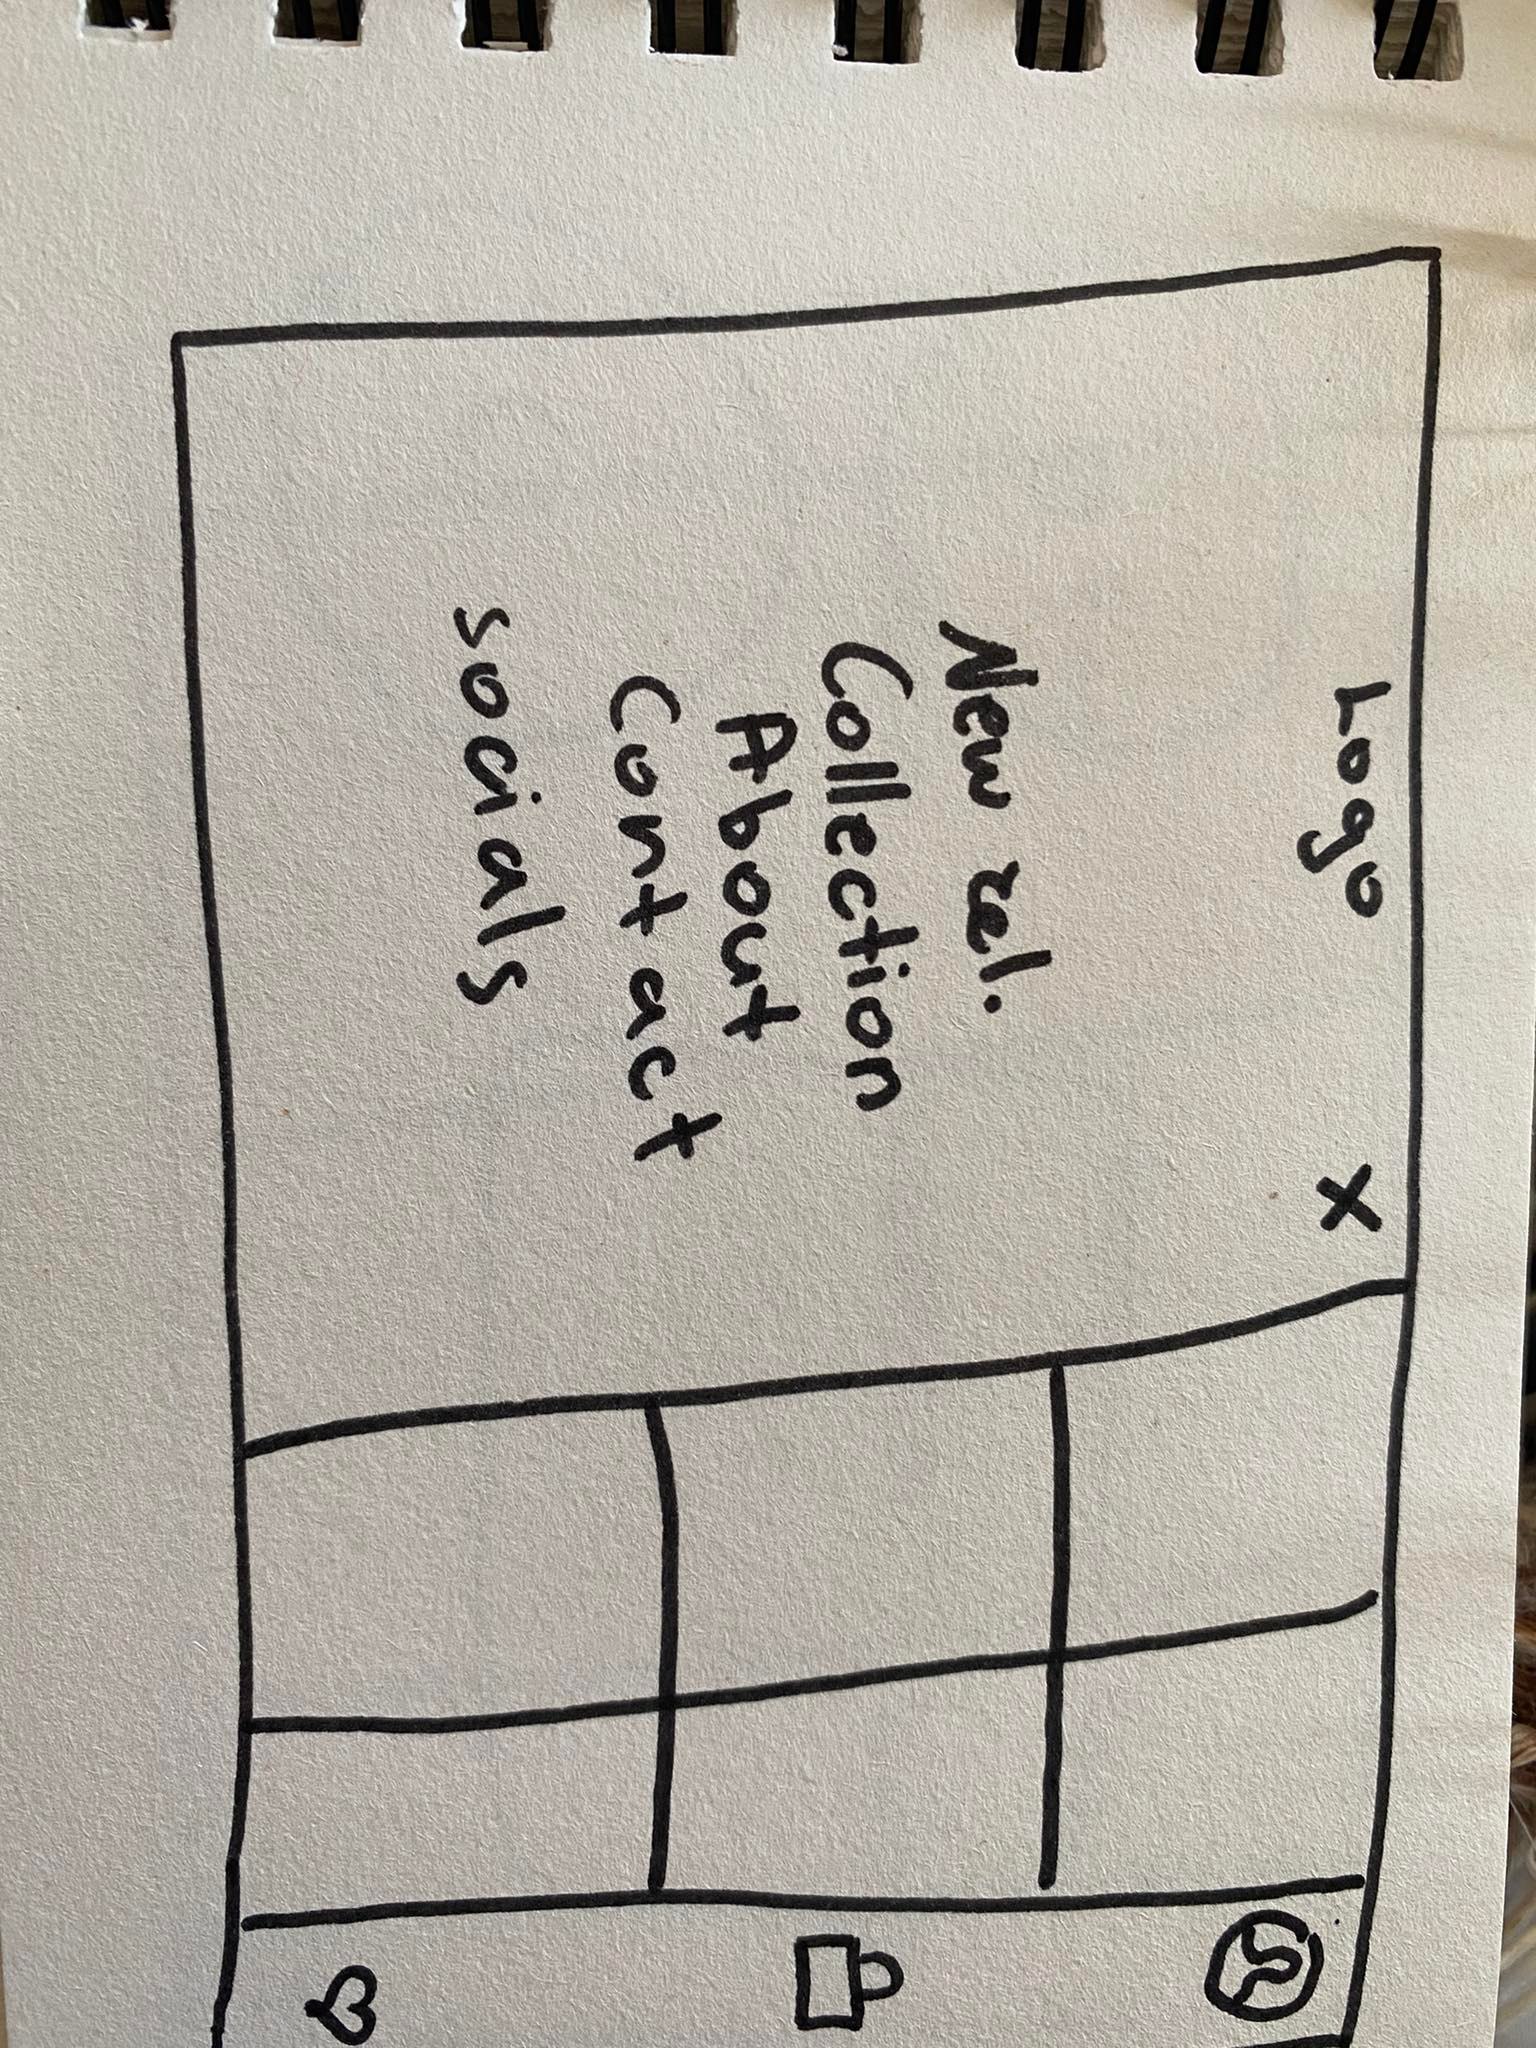 Logo X
New rel.
Collection
About
Contact
socials